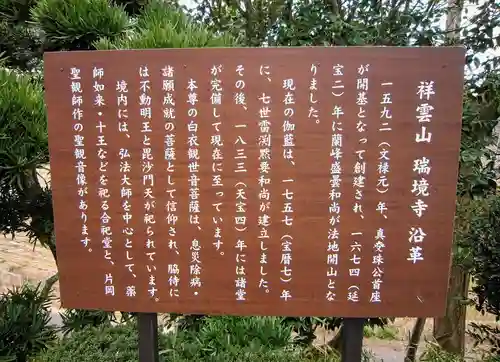 祥雲山 瑞境寺 沿革
一五九二（文禄元）年、真珠公首座
が開基となって創建され、一六七四（延
宝二）年に蘭峰盛雲和尚が法地開山とな
りました。
現在の伽藍は、一七五七（宝暦七）年
に、七世雷渕黙要和尚が建立しました。
その後、一八三三（天宝四）年には諸堂
が完備して現在に至っています。
本尊の白衣観世音菩薩は、息災除病・
諸願成就の菩薩として信仰され、脇侍に
は不動明王と毘沙門天が祀られています。
境内には、弘法大師を中心として、薬
師如来・十王などを祀る合祀堂と、片岡
聖観師作の聖観音像があります。